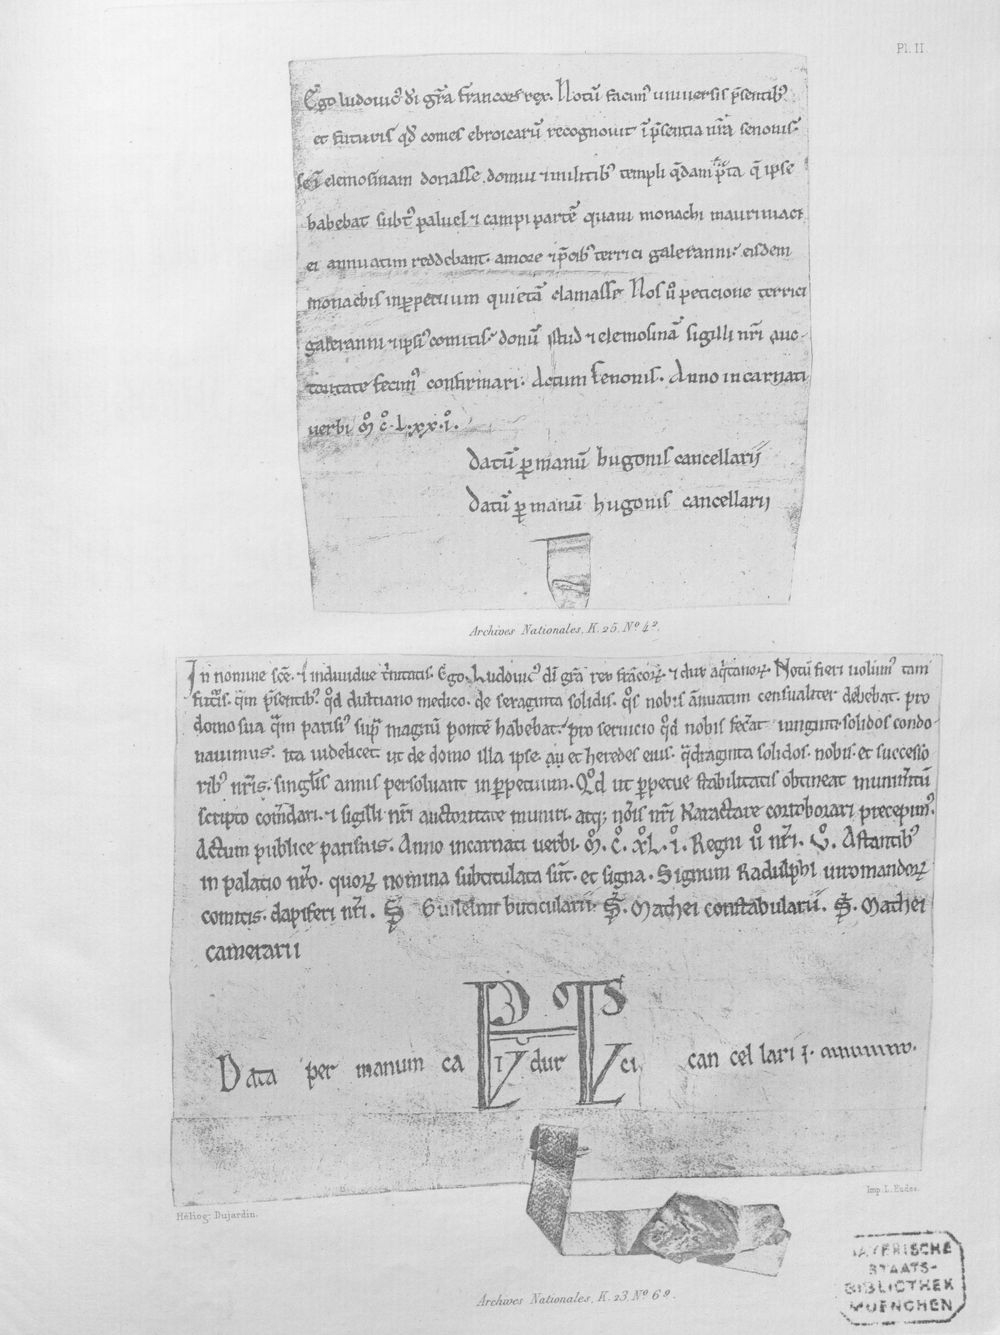 Pl. II
Ego ludovic᾽ di gr̄a francoꝝ rex. Notū facim᾽ universis p̄sentib᾽
et futuris qd̄ comes ebroicarū recognovit ī p̄sentia nr̄a senonis.
elemosinam donasse domui ⁊ militib᾽ templi q̄dam p̄ta q̄ ipse
habebat subt᾽ paluel ⁊ campi partē quam monachi maurimaci
ei annuatim reddebant. amore ⁊ p̄cib᾽ terrici galeranni. eisdem
monachis inꝑpetuum quietā clamasse. Nos ū peticione terrici
galeranni ⁊ ipsi᾽ comitis. donū istud ⁊ elemosinā sigilli nr̄i auc-
toritate fecim᾽ confirmari. Actum senonis. Anno incarnati
verbi. M̊. C̊. L.xx.i̊.
Datū ꝑ manū hugonis cancellarij
Datū ꝑ manū hugonis cancellarij
Archives Nationales, K. 25. Nº 4².
In nomine sc̄e ⁊ individue t̄nitatis. Ego Ludovic᾽ dī gr̄a rex frācoꝝ. ⁊ dux aq̄tanoꝝ. Notū fieri volum᾽ tam
futuris. q̄m p̄sentib᾽. qd̄ dustiano medico. de sexaginta solidis. q̊s nobis ānuatim censualiter debebat. pro
domo sua q̄m parisi᾽ sup̄ magnū pontē habebat. pro servicio q̊d nobis fec̄at viginti solidos condo-
navimus. ita videlicet ut de domo illa ipse. au et heredes eius. q̄draginta solidos. nobis. et successo
rib᾽ nr̄is. singl̄is annis persolvant inꝑpetuum. Q̊d ut ꝑpetue stabilitatis obtineat munim̄tū
scripto com̄dari. ⁊ sigilli nr̄i auctoritate muniri. atq; nōis nr̄i karactare corroborari precepim᾽.
Actum publice parisius. Anno incarnati verbi. M̊. C̊. XL. i̊. Regni ū nr̄i. V̊. Astantib᾽
in palatio nr̄o. quoꝝ nomina subtitulata sūt. et signa. Signum Radulphi viromandoꝝ
comitis. dapiferi nr̄i. S̄. Guilelmi buticularii. S̄. Mathei constabularii. S̄. Mathei
camerarii
Data per manum ca LVDOVICVS dur ci can cel lari j.
Héliog Dujardin.
Imp. L. Eudes.
Archives Nationales, K. 23. Nº 6².
BAYERISCHE
STAATS-
BIBLIOTHEK
MUENCHEN